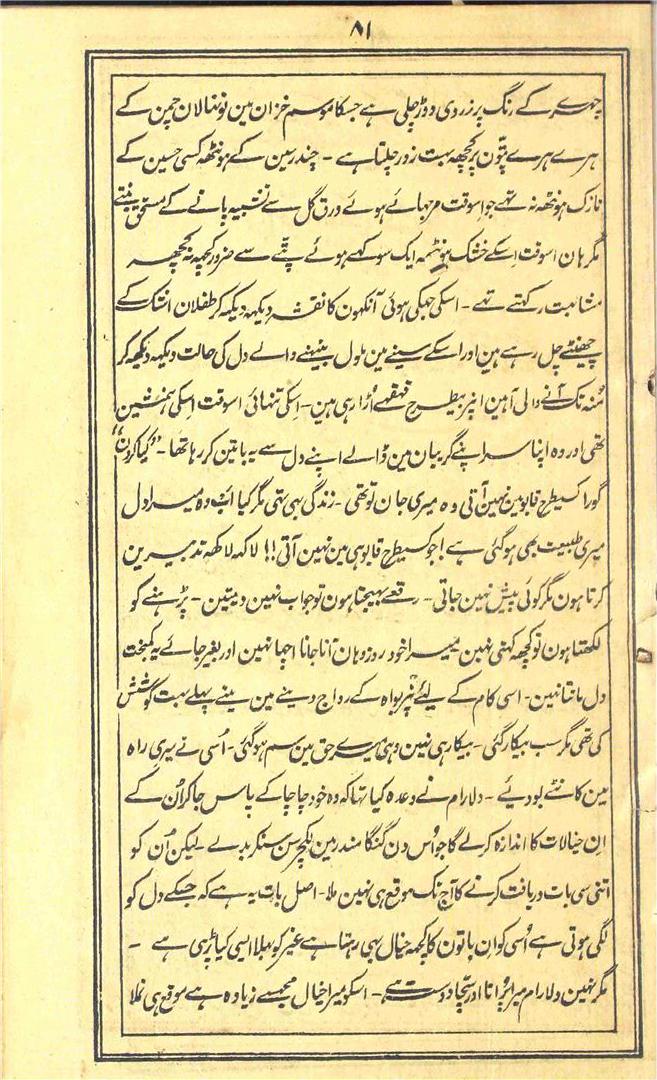 ۸۱
چہرے کے رنگ پر زردی دوڑ چلی ہے جسکا موسم خزان مین نونہالان چمن کے
ہرے ہرے پتّون پر کچھہ بہت زور چلتا ہے - چندرسین کے ہونٹھہ کسی حسین کے
نازک ہونٹھہ نہ تھے جو اسوقت مرجہائے ہوئے ورق گل سے تشبیہ پانے کے مستحق بنتے
مگر ہان اسوقت اسکے خشک ہونٹھہ ایک سوکہے ہوئے پتّے سے ضرور کچھہ نہ کچھہ
مشابہت رکہتے تہے - اسکی جہکی ہوئی آنکہون کا نقشہ دیکہہ دیکہہ کر طفلان اشک کے
چھینٹے چل رہے ہین اور اسکے سینے مین ملول بیٹہنے والے دل کی حالت دیکہہ دیکھہ کر
مُنہ تک آنے والی آہین اسپر بیطرح قہقہے اُڑا رہی ہین - اسکی تنہائی اسوقت اسکی ہمنشین
تھی اور وہ اپنا سر اپنے گریبان مین ڈالے اپنے دل سے یہ باتین کر رہا تھا - "کیا کرون"
گورا کسیطرح قابو مین نہین آتی وہ میری جان تو تھی - زندگی بہی تہی مگر کیا اب وہ میرا دل
میری طبیعت بھی ہو گئی ہے! جو کسیطرح قابو ہی مین نہین آتی!! لاکہہ لاکھہ تدبیرین
کرتا ہون مگر کوئی پیش نہین جاتی - رقعے بہیجتا ہون تو جواب نہین دیتین - پڑہنے کو
لکھتا ہون تو کچھہ کہتی نہین میرا خود روز وہان آنا جانا اچہا نہین اور بغیر جائے یہ کمبخت
دل مانتا نہین - اسی کام کے لیئے پُنر بواہ کے رواج دینے مین مینے پہلے بہت کوشش
کی تھی مگر سب بیکار گئی - بیکار ہی نہین وہی میرے حق مین سم ہو گئی - اُسی نے میری راہ
مین کانٹے بو دیئے - دلارام نے وعدہ کیا تہا کہ وہ خود چاچا کے پاس جا کر اُن کے
اِن خیالات کا اندازہ کرلے گا جو اُس دن گنگا مندر مین لکچر سن سنکر بدلے - لیکن اُن کو
اتنی سی بات دریافت کرنے کا آج تک موقع ہی نہین ملا - اصل بات یہ ہے کہ جسکے دل کو
لگی ہوتی ہے اُسی کو اِن باتون کا کچھہ خیال بہی رہتا ہے غیر کو بہلا ایسی کیا پڑی ہے -
مگر نہین دلارام میرا پُرانا اور سچا دوست ہے - اسکو میرا خیال مجھسے زیادہ ہے موقع ہی نملا